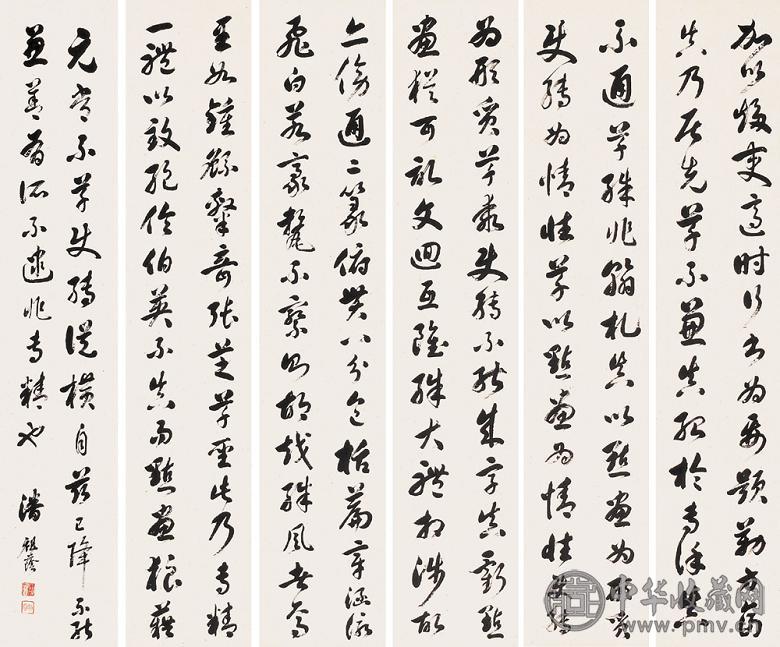 加以趨變適時行書為要題勒方畐
真乃居先草不兼真殆於專謹真
不通草殊非翰札真以點畫為形質
使轉為情性草以點畫為情性使轉
為形質草乖使轉不能成字真虧點
畫猶可記文迴互雖殊大體相涉故
亦傍通二篆俯貫八分包括篇章涵泳
飛白若毫釐不察則胡越殊風者焉
至如鍾繇隸奇張芝草聖此乃專精
一體以致絕倫伯英不真而點畫狼藉
元常不草使轉縱橫自茲已降不能
兼善者有所不逮非專精也 潘祖蔭
中华收藏网
www.pmv.cn